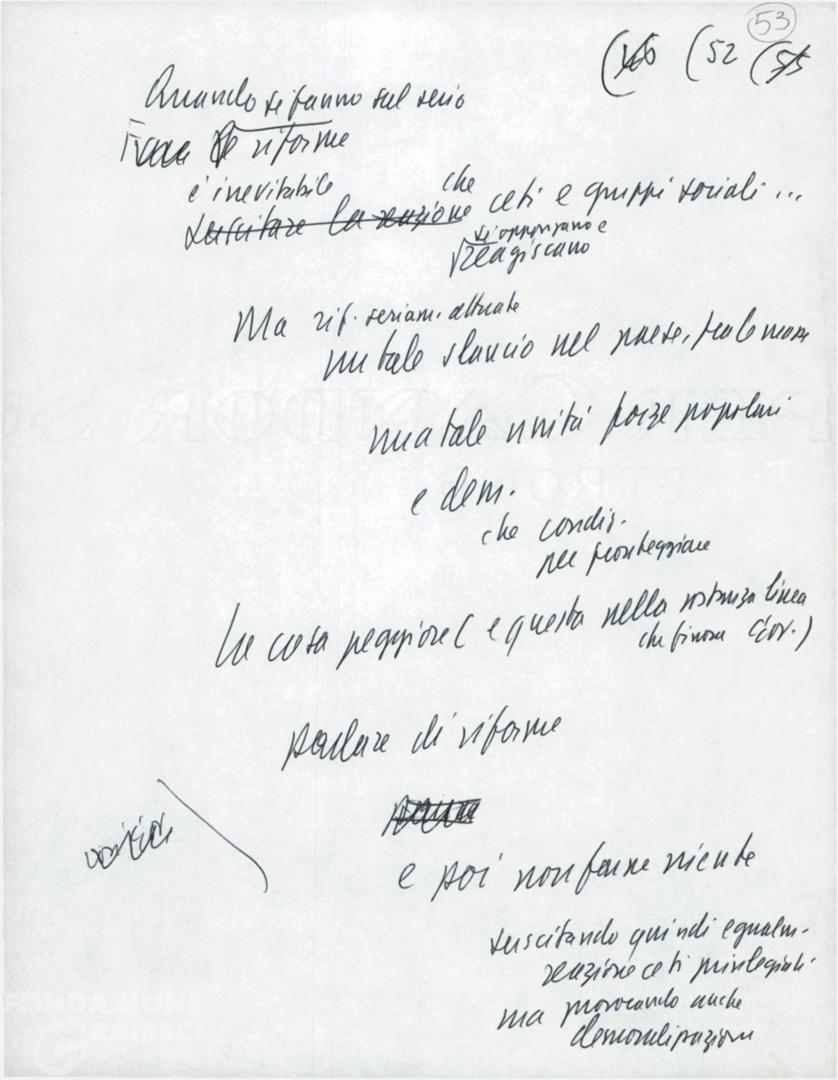 53
(46 (52 (55
Quando si fanno sul serio
Fare le riforme
è inevitabile che ceti e gruppi sociali ...
suscitare la reazione
si oppongano e
reagiscano
Ma rif. seriam. attuate
un tale slancio nel paese, tra le masse
una tale unità forze popolari
e dem.
che condiz.
per fronteggiare
La cosa peggiore (e questa nella sostanza linea
che finora Gov.)
parlare di riforme
e poi non farne niente
suscitando quindi egualm.
reazione ceti privilegiati
ma provocando anche
demoralizzazione
FONDAZIONE
GRAMSCI